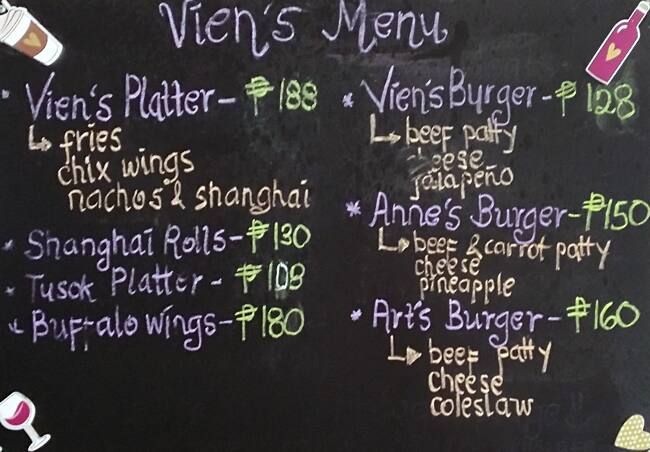 Vien's Menu
Vien's Platter - ₱ 188
fries
chix wings
nachos & shanghai
* Shanghai Rolls - ₱ 130
* Tusok Platter - ₱ 108
* Buffalo wings - ₱ 180
* Vien's Burger - ₱ 128
beef patty
cheese
jalapeño
* Anne's Burger - ₱150
beef & carrot patty
cheese
pineapple
* Art's Burger - ₱160
beef patty
cheese
coleslaw